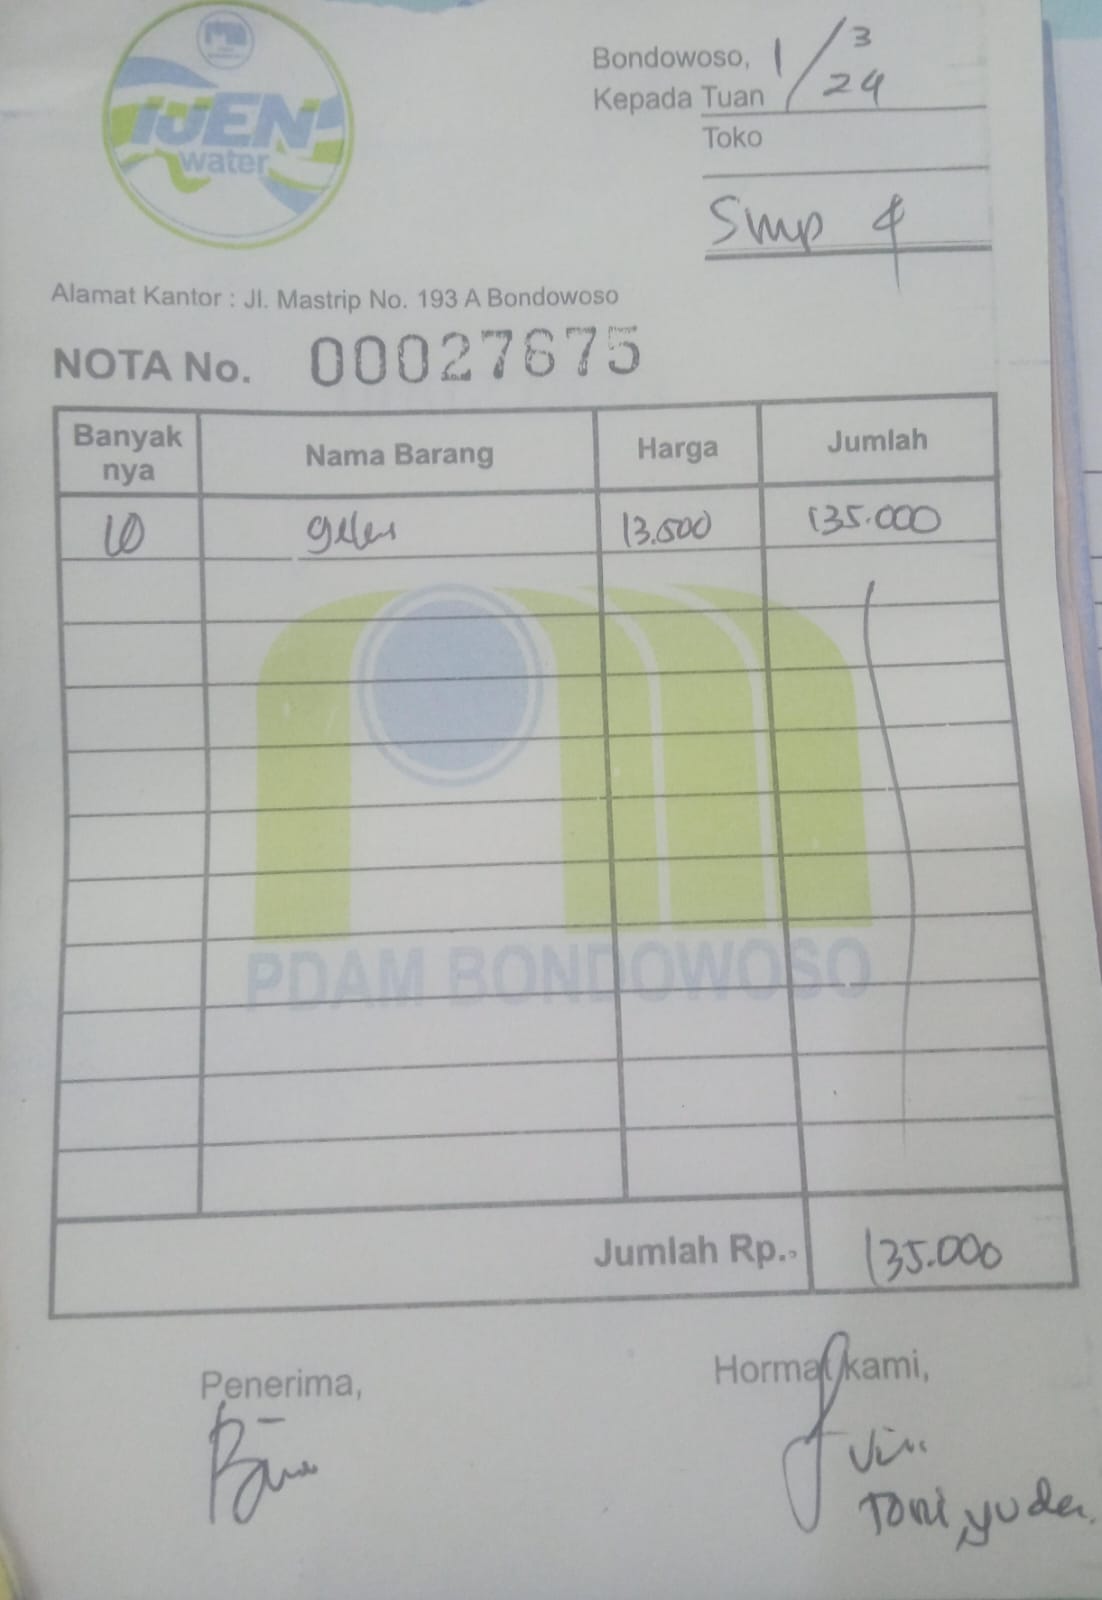 IJEN
water
Bondowoso, 1/3 24
Kepada Tuan
Toko
Smp 4
Alamat Kantor : Jl. Mastrip No. 193 A Bondowoso
NOTA No. 00027675
Banyak nya Nama Barang Harga Jumlah
10 13.500 135.000
PDAM BONDOWOSO
Jumlah Rp. 135.000
Penerima, Hormat kami,
Toni, yuda